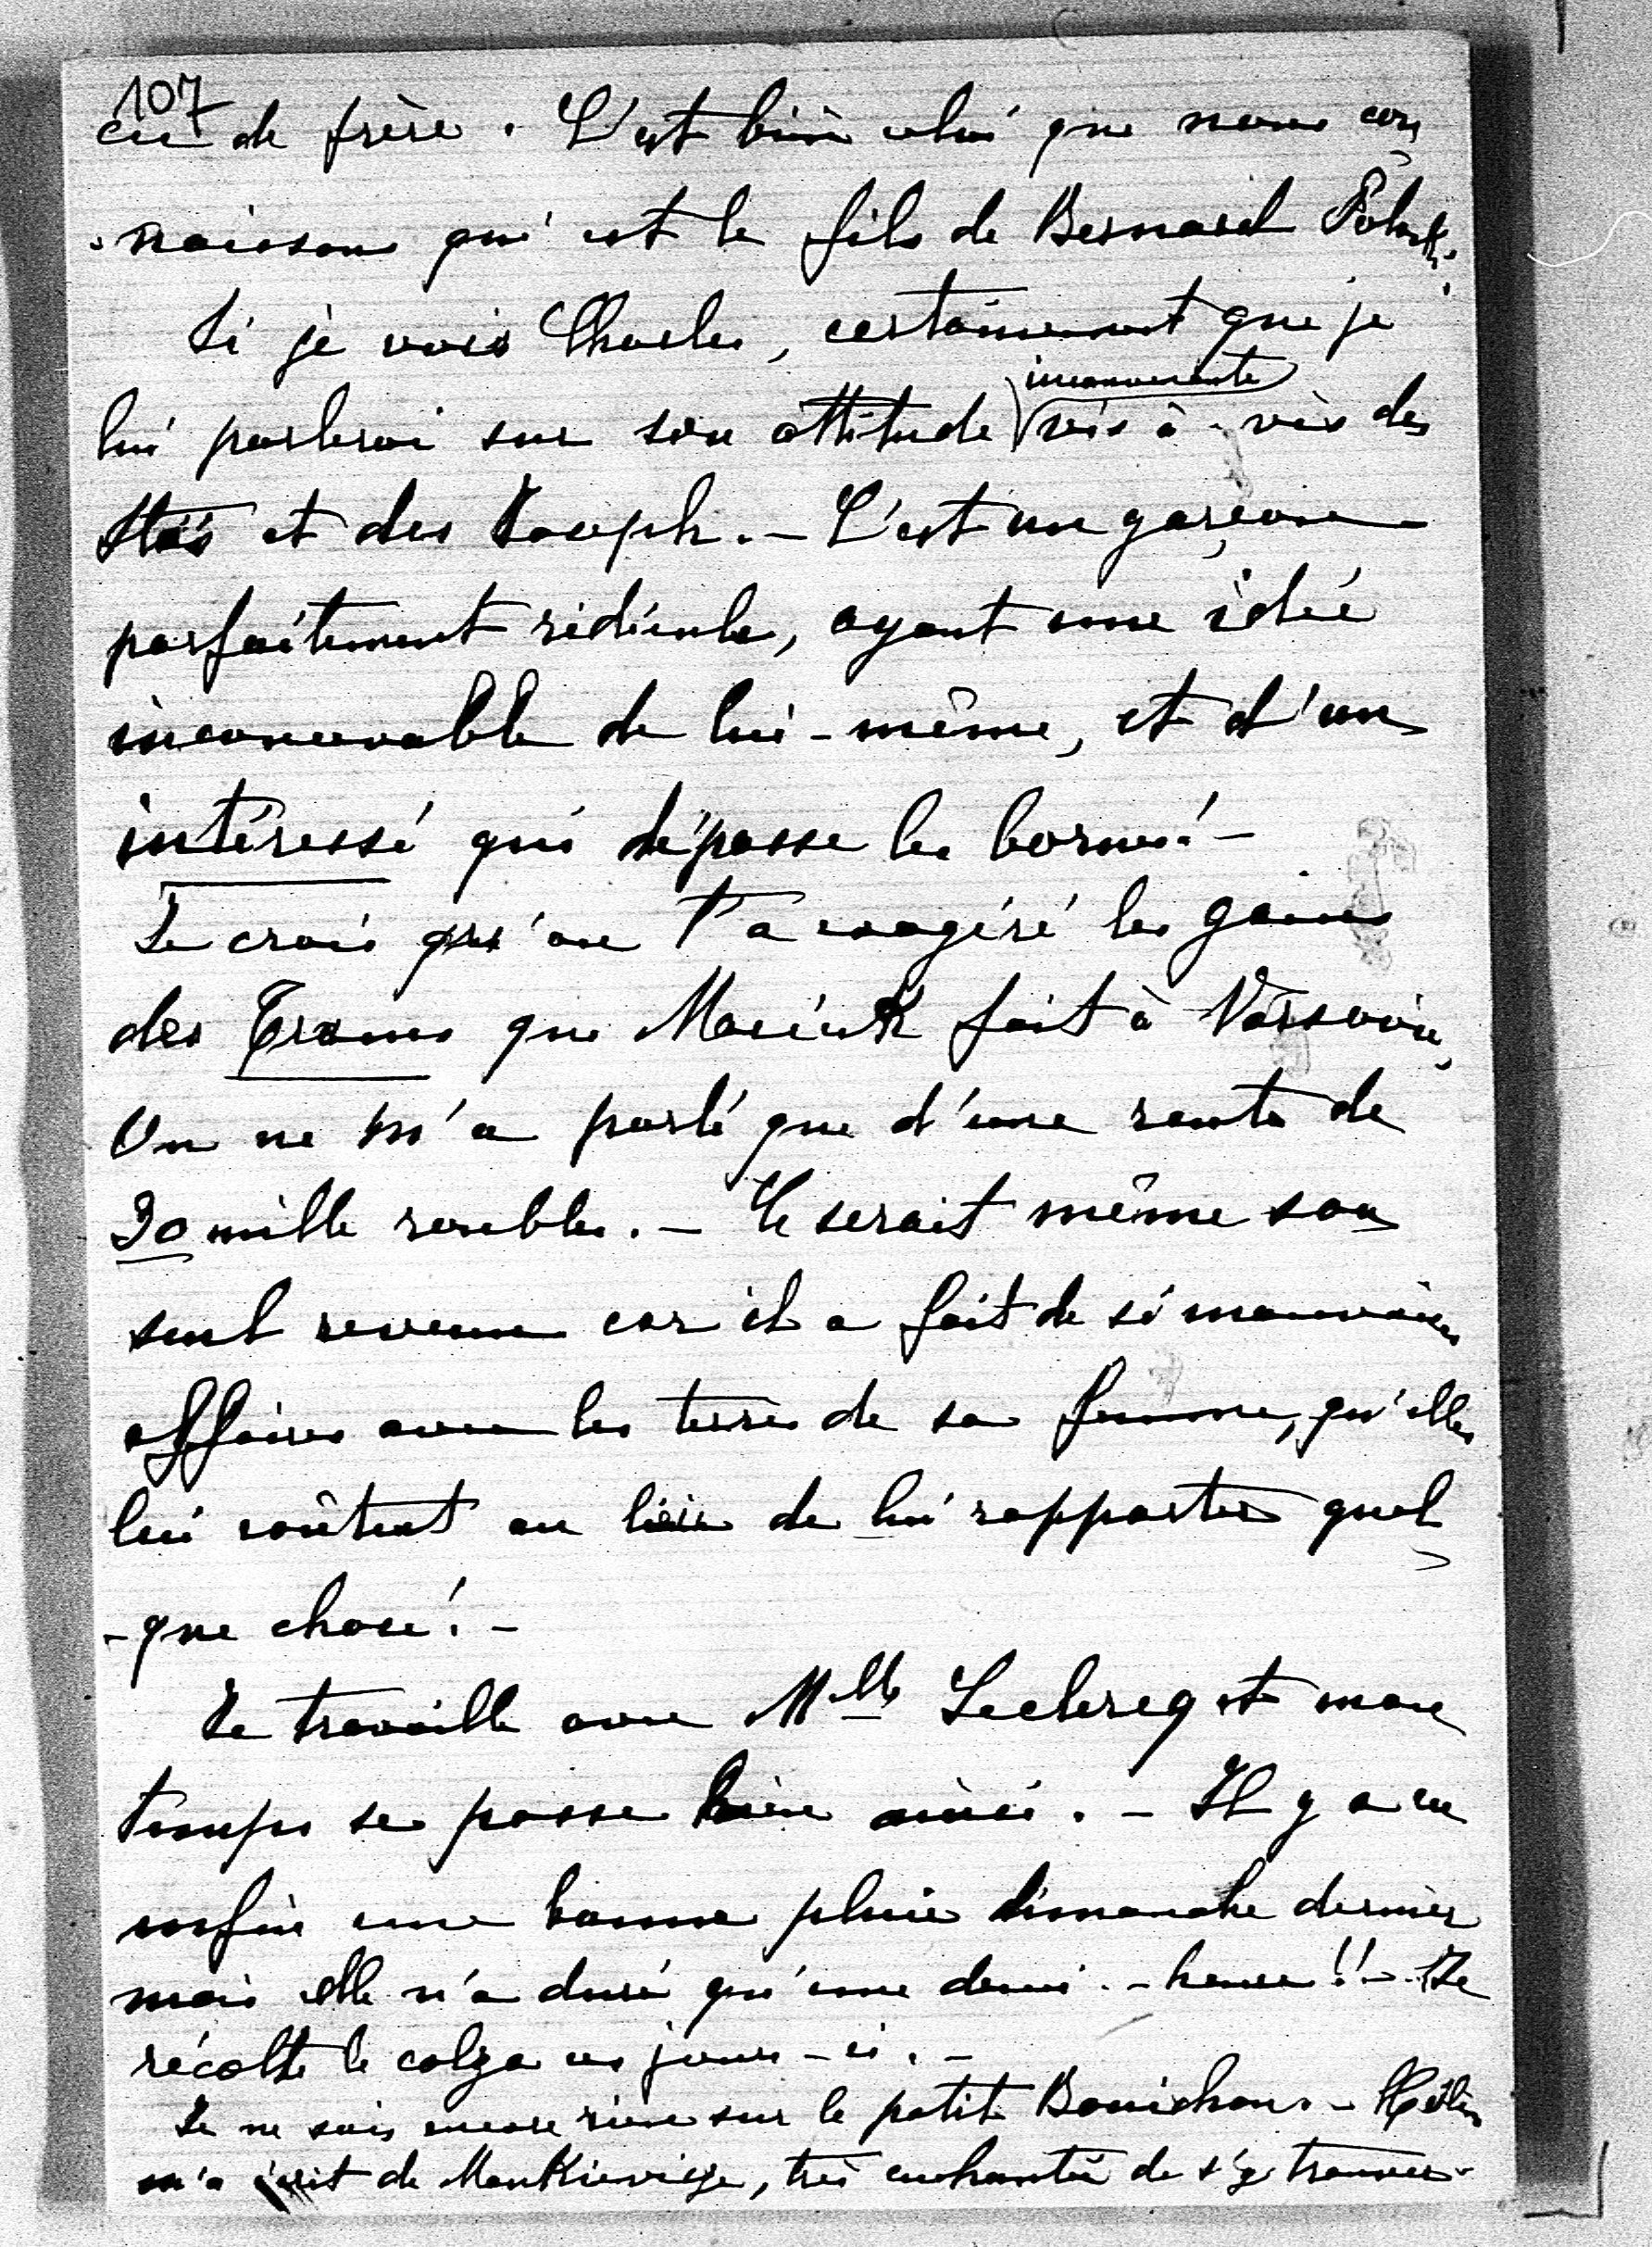 107
eu de frère. C'est bien celui que nous con
-naissons qui est le fils de Bernard
Si je vois Charles, certainement que je
inconvenante
lui parlerai sur son attitude vis à-vis des
Stas et des Joseph. - C'est un garçon
parfaitement ridicule, ayant une idée
inconcevable de lui-même, et d'un
intéressé qui dépasse les bornes! -
Je crois qu'on t'a exagéré les gains
des Trams que Maciek fait à Varsovie,
On ne m'a parlé que d'une rente de
30 mille roubles. - Ce serait même son
seul revenu car il a fait de si mauvaises
affaires avec les terres de sa femme, qu'elles
lui coûtent au lieu de lui rapporter quel
-que chose! -
Je travaille avec Mlle Leclercq et mon
temps se passe bien ainsi. - Il y a eu
enfin une bonne pluie dimanche dernier
mais elle n'a duré qu'une demi-heure!! - Je
récolte le colza ces jours-ci. -
Je ne sais encore rien sur le petit Bonichon. -
m'a écrit de Mankievicze, très enchantée de s'y trouver.